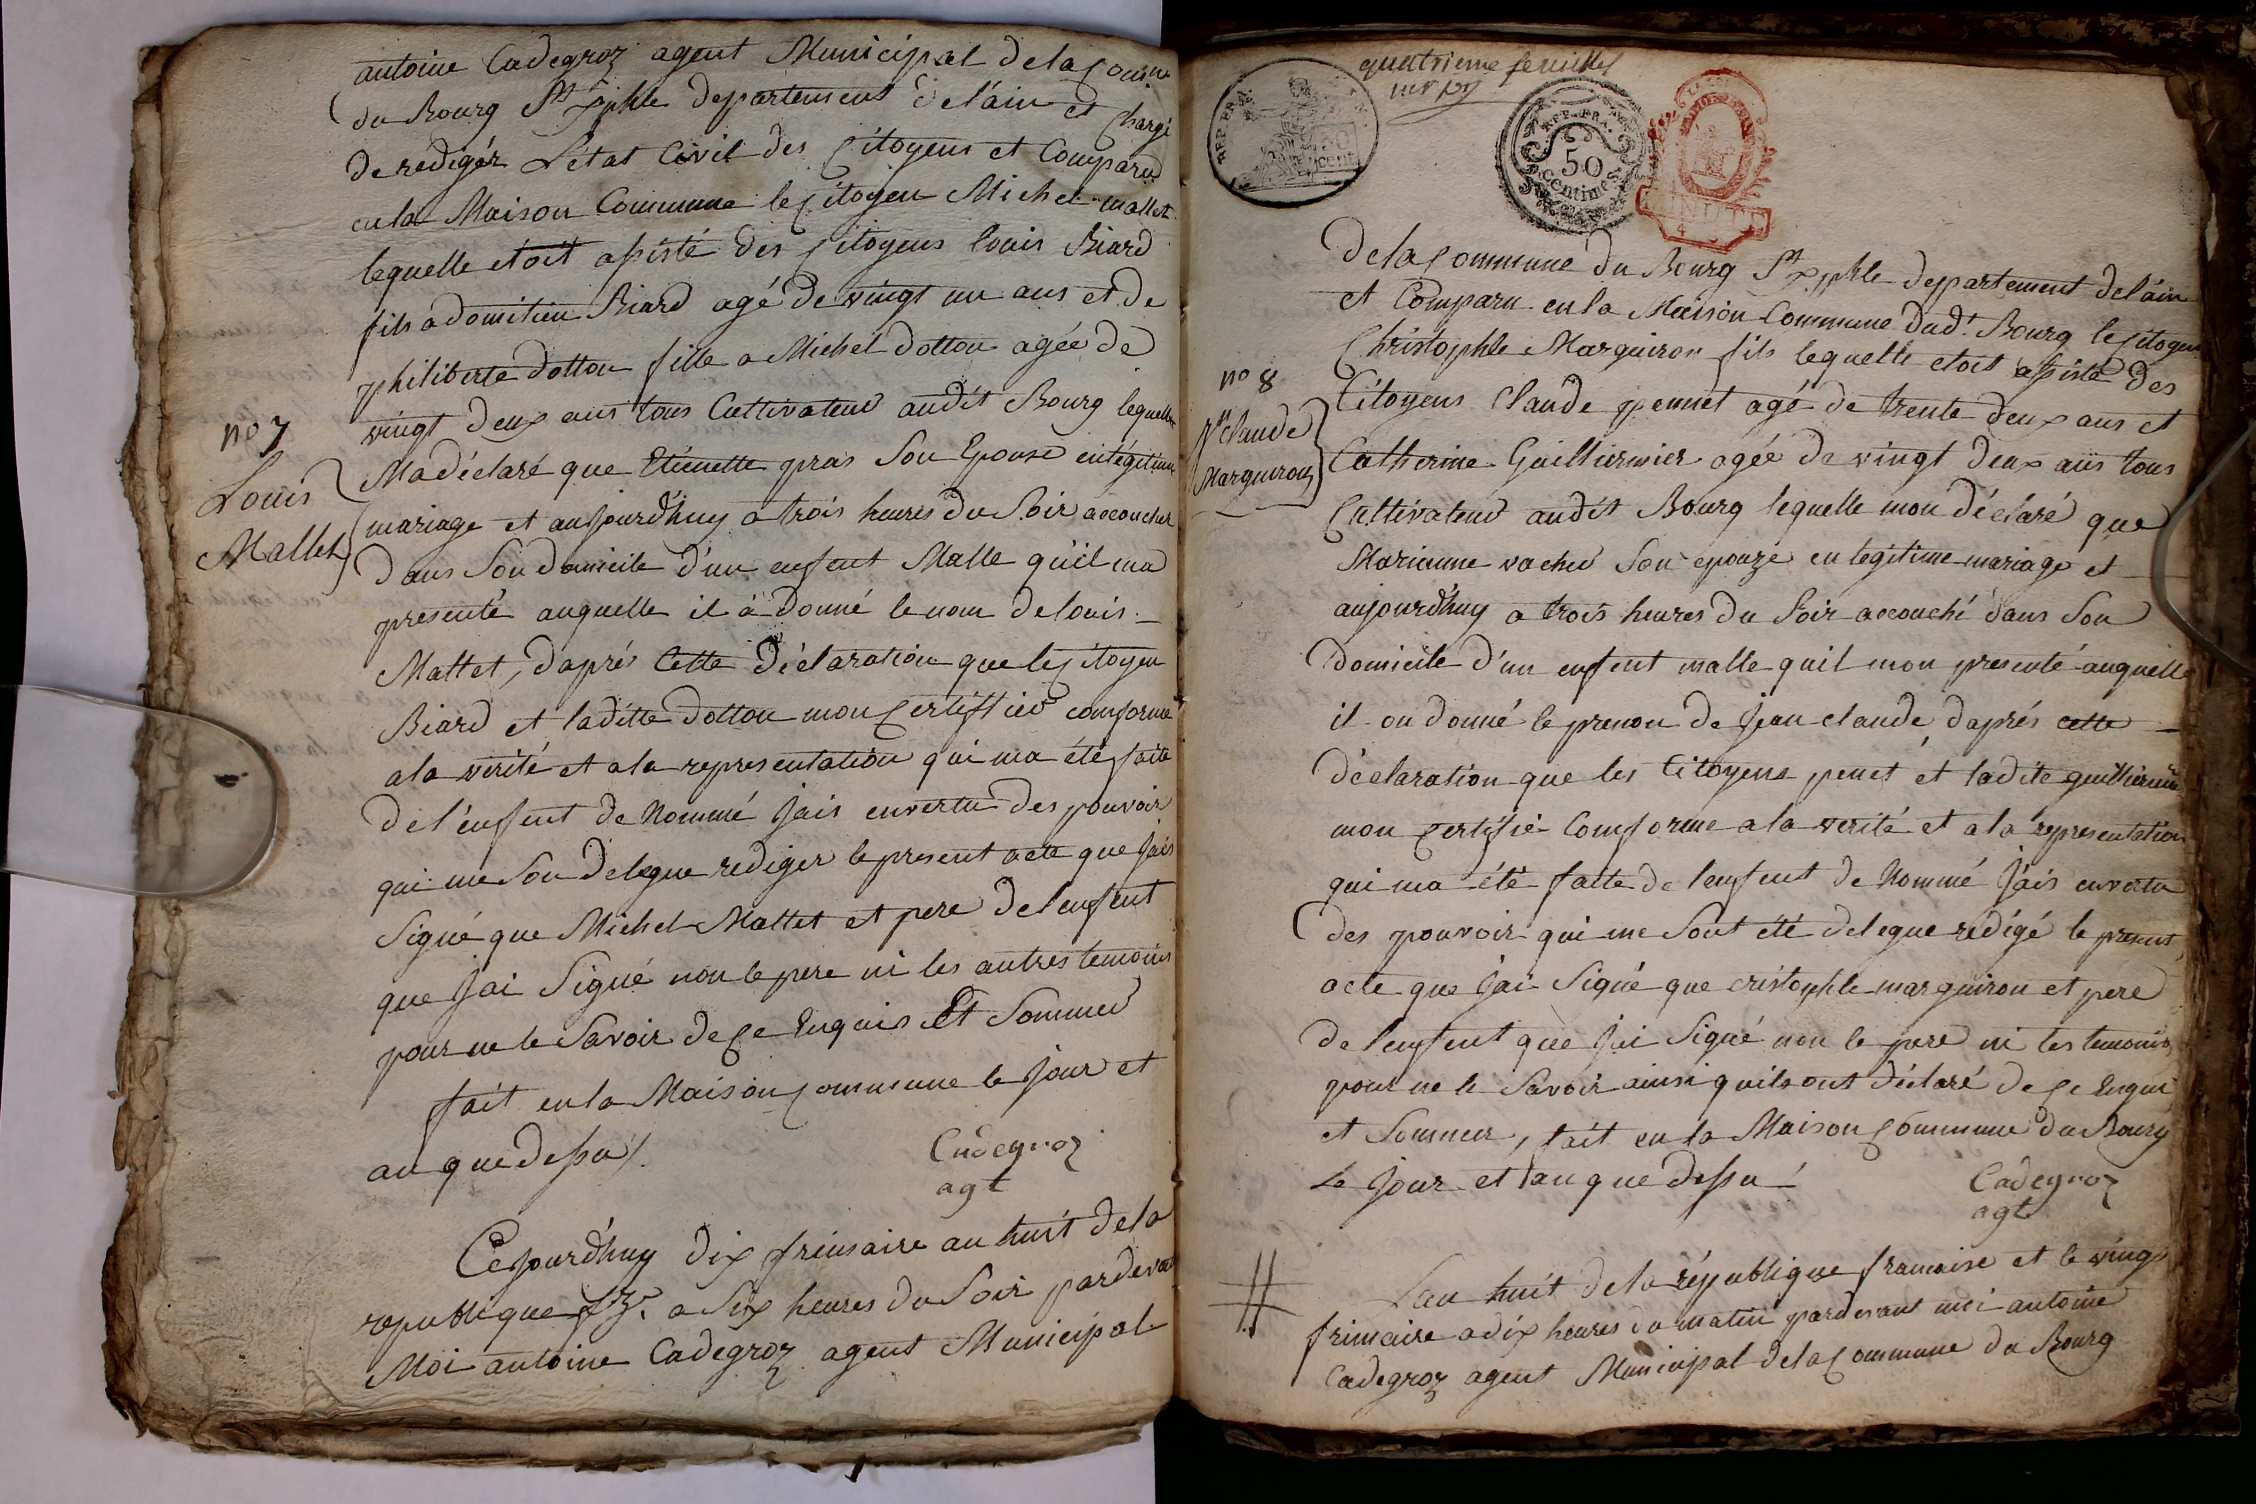 antoine Cadegroz agent Municipal de la Comune
du Bourg St xphle departement de l'ain et Chargé
de redigér L'état Civil des Citoyens et Comparu
en la Maison Commune le Citoyen Michel mallet
lequelle étoit assisté des Citoyens louis Biard
fils a domitien Biard agé de vingt un ans et de
philiberte dotton fille a Michel dotton agée de
vingt deux ans tous Cultivateur audit Bourg lequelle
Ma déclaré que Etiennette gras Son Epouse en légitime
no 7
Louis
Mallet
mariage et aujourd'huy a trois heures du Soir accouchée
dans Son domicile d'un enfent Malle qu'il ma
presenté auquelle il à donné le nom de louis
Mallet, daprés Cette Déclaration que le Citoyen
Biard et laditte dotton mon Certiffiér comforme
a la vérité et a la representation qui ma été faite
de l'enfent de Nommé Jais envertu des pouvoir
qui me Son delegue rediger le present acte que Jais
Signé que Michel Mallet et pere de l'enfent
que Jai Signé non le pere ni les autres temoins
pour ne le Savoir de Ce Enquis Et Sommer
fait en la Maison Commune le Jour et
an que dessu
Cadegroz
agt
Cejourd'huy dix frimaire an huit de la
republique fze. a Six heures du Soir pardevant
Moi antoine Cadegroz agent Municipal
quatrieme feuillet
REP. FRA.
50
cent
REP. FRA.
50
Centimes
de la Commune du Bourg St xphle departement de l'ain
et Comparu en la Maison Commune dudt. Bourg le Citoyen
Christophle Marguiron fils lequelle etoit assisté des
Citoyens Claude pennet agé de trente deux ans et
no 8
Jn Claude
Marguiron
Catherine Guilliermier agée de vingt deux ans tous
Cultivateur audit Bourg lequelle mon déclaré que
Marianne vacher Son epouze en légitime mariage et
aujourd'huy a trois heures du Soir accouché dans Son
domicile d'un enfent malle quil mon presenté auquelle
il on donné le prenon de Jean claude, daprés cette
déclaration que les Citoyens penet et ladite guillierm
mon certifié Comforme a la verité et a la representation
qui ma été faitte de l'enfent de Nommé J'ais envertu
des pouvoir qui me Sont été delegue rédigé le present
acte que Jai Signé que cristophle marguiron et pere
de l'enfent que Jai Signé non le pere ni les temoins
pour ne le Savoir ainsi quils ont déclaré de Ce Enqui
et Sommer, fait en la Maison Commune du Bourg
Le Jour et l'an que dessu
Cadegroz
agt
L'an huit de la république francaise et le vingt
frimaire a dix heures du matin pardevant moi antoine
Cadegroz agent Municipal de la Commune du Bourg